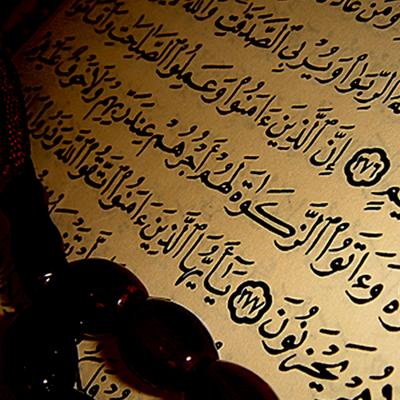 وَمَنْ عَادَ
ٱلرِّبَوٰا۟ وَيُرْبِى ٱلصَّدَقَـٰتِ وَٱللَّهُ
إِنَّ ٱلَّذِينَ ءَامَنُوا۟ وَعَمِلُوا۟ ٱلصَّـٰلِحَـٰتِ وَأَقَامُوا۟ ٢٧٦
وَءَاتَوُا۟ ٱلزَّكَوٰةَ لَهُمْ أَجْرُهُمْ عِندَ رَبِّهِمْ وَلَا خَوْفٌ عَلَيْهِمْ
هُمْ يَحْزَنُونَ ٢٧٧ يَـٰٓأَيُّهَا ٱلَّذِينَ ءَامَنُوا۟ ٱتَّقُوا۟ ٱللَّهَ وَذَرُوا۟